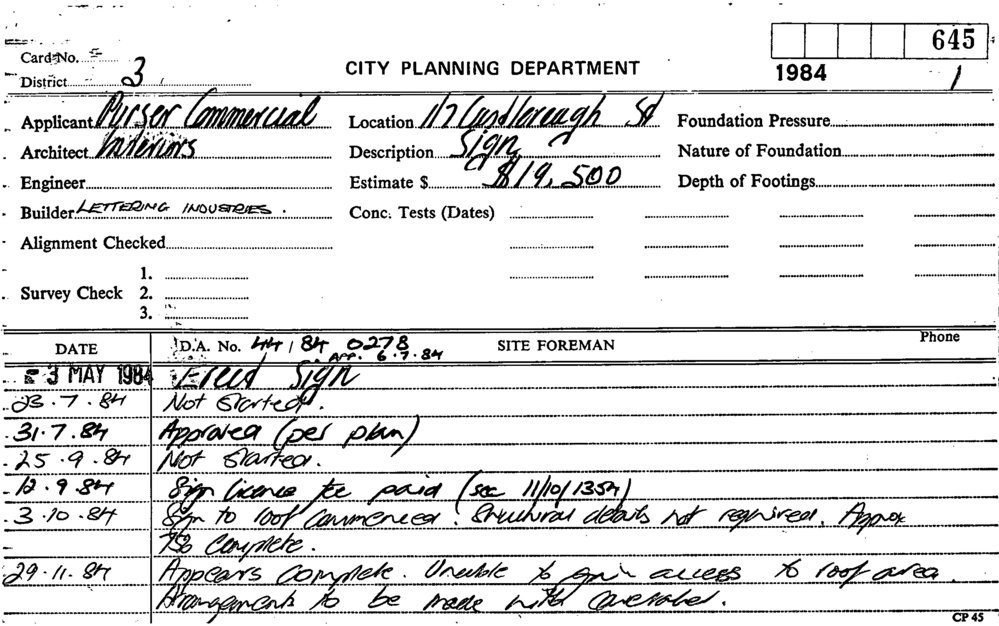 645
Card No.
CITY PLANNING DEPARTMENT
1984 1
District 3
Applicant Purser Commercial Location 1/7 Castlereagh St Foundation Pressure
Architect Interiors Description Sign Nature of Foundation
Engineer Estimate $ $19,500 Depth of Footings
Builder LETTERING INDUSTRIES. Conc. Tests (Dates)
Alignment Checked
1.
Survey Check 2.
3.
DATE D.A. No. 44/84 0278 SITE FOREMAN Phone
App. 6.7.84
3 MAY 1984 Erect Sign
23.7.84 Not Started.
31.7.84 Approved (per plan)
25.9.84 Not Started.
12.9.84 Sign licence fee paid (see 11/10/1354)
3.10.84 Sign to roof commenced. Structural details not required. Approx
75% Complete.
29.11.84 Appears Complete. Unable to gain access to roof area.
Arrangements to be made with caretaker.
CP 45